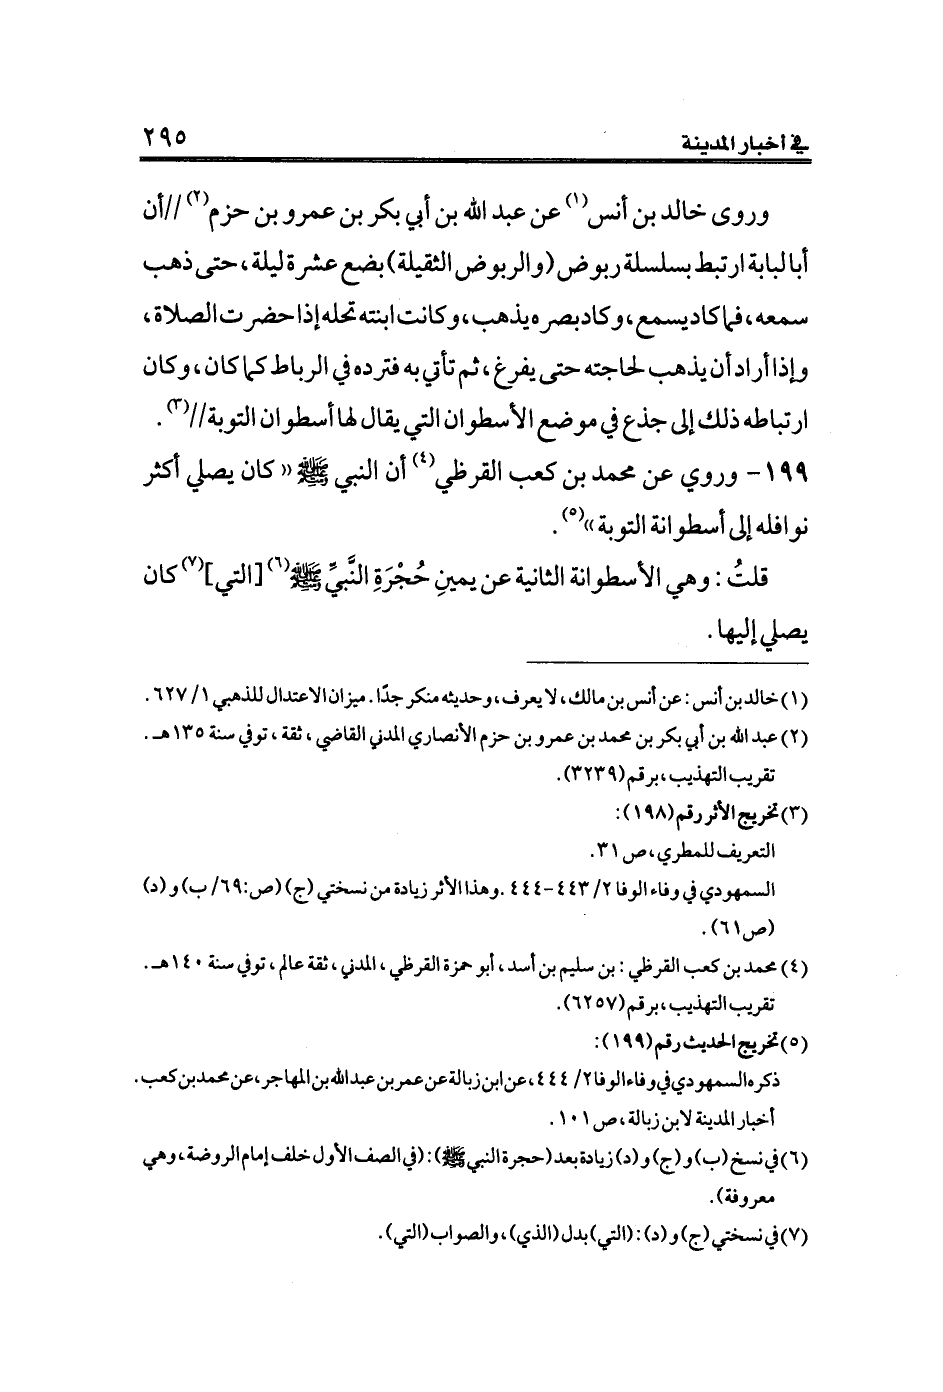 في أخبار المدينة ٢٩٥
وروى خالد بن أنس(١) عن عبد الله بن أبي بكر بن عمرو بن حزم(٢) //أن
أبا لبابة ارتبط بسلسلة ربوض (والربوض الثقيلة) بضع عشرة ليلة، حتى ذهب
سمعه، فما كاد يسمع، وكاد بصره يذهب، وكانت ابنته تحله إذا حضرت الصلاة،
وإذا أراد أن يذهب لحاجته حتى يفرغ، ثم تأتي به فترده في الرباط كما كان، وكان
ارتباطه ذلك إلى جذع في موضع الأسطوان التي يقال لها أسطوان التوبة//(٣).
١٩٩- وروي عن محمد بن كعب القرظي(٤) أن النبي ﷺ «كان يصلي أكثر
نوافله إلى أسطوانة التوبة»(٥).
قلتُ: وهي الأسطوانة الثانية عن يمينِ حُجْرَةِ النَّبيِّ ﷺ(٦) [التي](٧) كان
يصلي إليها.
(١) خالد بن أنس: عن أنس بن مالك، لا يعرف، وحديثه منكر جدًا. ميزان الاعتدال للذهبي ١/ ٦٢٧.
(٢) عبد الله بن أبي بكر بن محمد بن عمرو بن حزم الأنصاري المدني القاضي، ثقة، توفي سنة ١٣٥هـ.
تقريب التهذيب، برقم (٣٢٣٩).
(٣) تخريج الأثر رقم (١٩٨):
التعريف للمطري، ص ٣١.
السمهودي في وفاء الوفا ٢/ ٤٤٣-٤٤٤. وهذا الأثر زيادة من نسختي (ج) (ص: ٦٩/ ب) و (د)
(ص٦١).
(٤) محمد بن كعب القرظي: بن سليم بن أسد، أبو حمزة القرظي، المدني، ثقة عالم، توفي سنة ١٤٠هـ.
تقريب التهذيب، برقم (٦٢٥٧).
(٥) تخريج الحديث رقم (١٩٩):
ذكره السمهودي في وفاء الوفا ٢/ ٤٤٤، عن ابن زبالة عن عمر بن عبد الله بن المهاجر، عن محمد بن كعب.
أخبار المدينة لابن زبالة، ص ١٠١.
(٦) في نسخ (ب) و (ج) و (د) زيادة بعد (حجرة النبي ﷺ): (في الصف الأول خلف إمام الروضة، وهي
معروفة).
(٧) في نسختي (ج) و (د): (التي) بدل (الذي)، والصواب (التي).